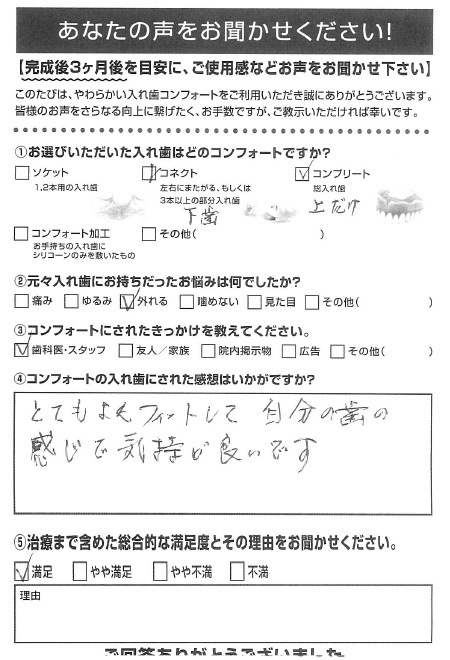 あなたの声をお聞かせください!
【完成後3ヶ月後を目安に、ご使用感などお声をお聞かせ下さい】
このたびは、やわらかい入れ歯コンフォートをご利用いただき誠にありがとうございます。
皆様のお声をさらなる向上に繋げたく、お手数ですが、ご教示いただければ幸いです。
①お選びいただいた入れ歯はどのコンフォートですか?
□ソケット ☑コネクト ☑コンプリート
1,2本用の入れ歯 左右にまたがる、もしくは 総入れ歯
3本以上の部分入れ歯
下歯 上だけ
□コンフォート加工 □その他( )
お手持ちの入れ歯に
シリコーンのみを敷いたもの
②元々入れ歯にお持ちだったお悩みは何でしたか?
□痛み □ゆるみ ☑外れる □噛めない □見た目 □その他( )
③コンフォートにされたきっかけを教えてください。
☑歯科医・スタッフ □友人/家族 □院内掲示物 □広告 □その他( )
④コンフォートの入れ歯にされた感想はいかがですか?
とてもよくフィットして 自分の歯の
感じで気持が良いです
⑤治療まで含めた総合的な満足度とその理由をお聞かせください。
☑満足 □やや満足 □やや不満 □不満
理由
ご回答ありがとうございました